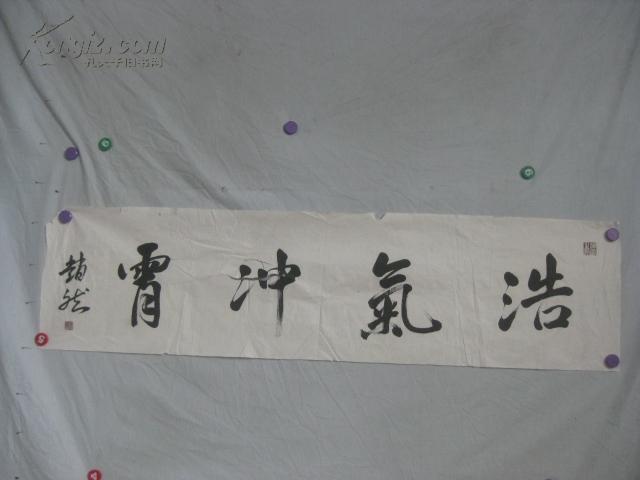 浩氣冲霄
赵然
Kongfz.com
孔夫子旧书网